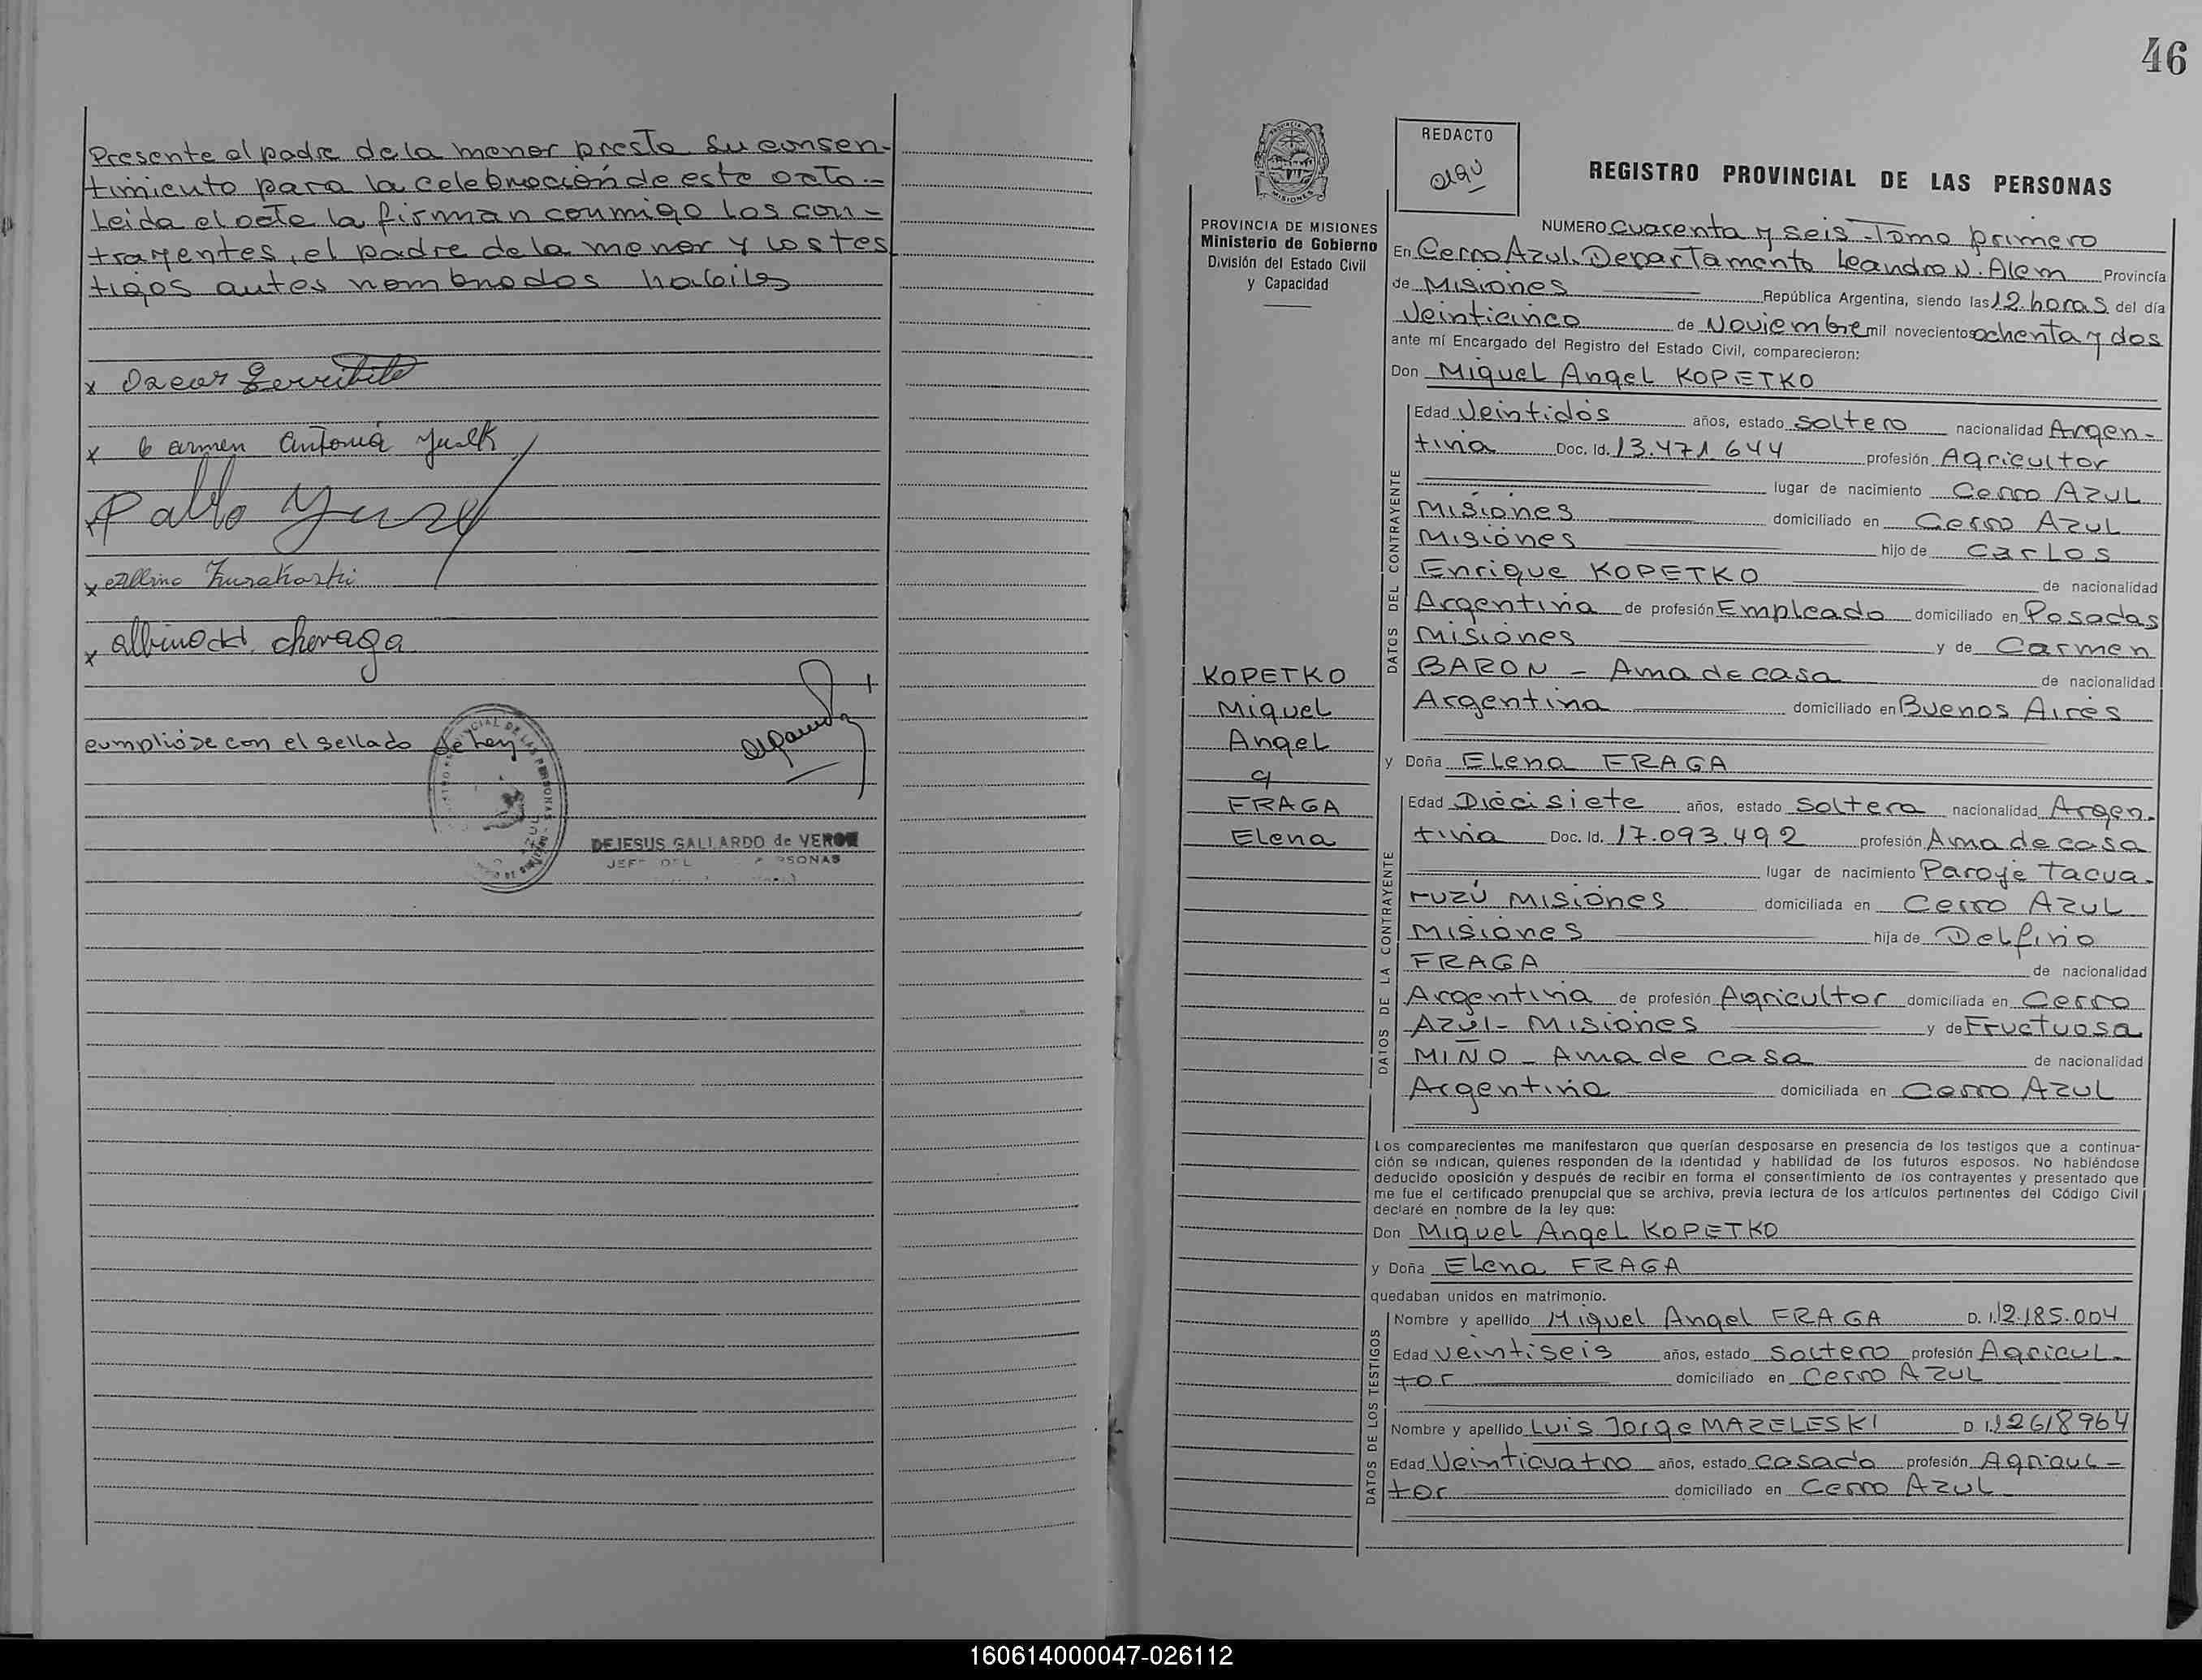 Presente el padre de la menor presta su consen-
timiento para la celebración de este acto.=
Leida el acta la firman conmigo los con-
trayentes, el padre de la menor y los tes
tigos antes nombrados habiles
x Oscar
x Carmen Antonia Yusk
x Pablo Yusk
x Albino
x albino chavaga
cumplióse con el sellado de Ley
DEJESUS GALLARDO de VERON
JEFE DEL PERSONAS
46
REDACTO
REGISTRO PROVINCIAL DE LAS PERSONAS
PROVINCIA DE MISIONES
Ministerio de Gobierno
División del Estado Civil
y Capacidad
NUMERO Cuarenta y seis - Tomo primero
En Cerro Azul. Departamento Leandro N. Alem Provincia
de Misiones República Argentina, siendo las 12 horas del día
Veinticinco de Noviembre mil novecientos ochenta y dos
ante mí Encargado del Registro del Estado Civil, comparecieron:
Don Miguel Angel KOPETKO
DATOS DEL CONTRAYENTE
Edad Veintidós años, estado soltero nacionalidad Argen-
tina Doc. Id. 13.471.644 profesión Agricultor
lugar de nacimiento Cerro Azul
Misiones domiciliado en Cerro Azul
Misiones hijo de Carlos
Enrique KOPETKO de nacionalidad
Argentina de profesión Empleado domiciliado en Posadas
Misiones y de Carmen
BARON - Ama de casa de nacionalidad
Argentina domiciliado en Buenos Aires
KOPETKO
Miguel
Angel
y
FRAGA
Elena
y Doña Elena FRAGA
DATOS DE LA CONTRAYENTE
Edad Diécisiete años, estado soltera nacionalidad Argen-
tina Doc. Id. 17.093.492 profesión Ama de casa
lugar de nacimiento Paraje Tacua-
ruzú Misiones domiciliada en Cerro Azul
Misiones hija de Delfino
FRAGA de nacionalidad
Argentina de profesión Agricultor domiciliada en Cerro
Azul- Misiones y de Fructuosa
MIÑO - Ama de casa de nacionalidad
Argentina domiciliada en Cerro Azul
Los comparecientes me manifestaron que querían desposarse en presencia de los testigos que a continua-
ción se indican, quienes responden de la identidad y habilidad de los futuros esposos. No habiéndose
deducido oposición y después de recibir en forma el consentimiento de los contrayentes y presentado que
me fue el certificado prenupcial que se archiva, previa lectura de los artículos pertinentes del Código Civil
declaré en nombre de la ley que:
Don Miguel Angel KOPETKO
y Doña Elena FRAGA
quedaban unidos en matrimonio.
DATOS DE LOS TESTIGOS
Nombre y apellido Miguel Angel FRAGA D. I. 12.185.004
Edad veintiseis años, estado soltero profesión Agricul-
tor domiciliado en Cerro Azul
Nombre y apellido Luis Jorge MAZELESKI D. I. 12618964
Edad Veinticuatro años, estado casado profesión Agricul-
tor domiciliado en Cerro Azul
160614000047-026112